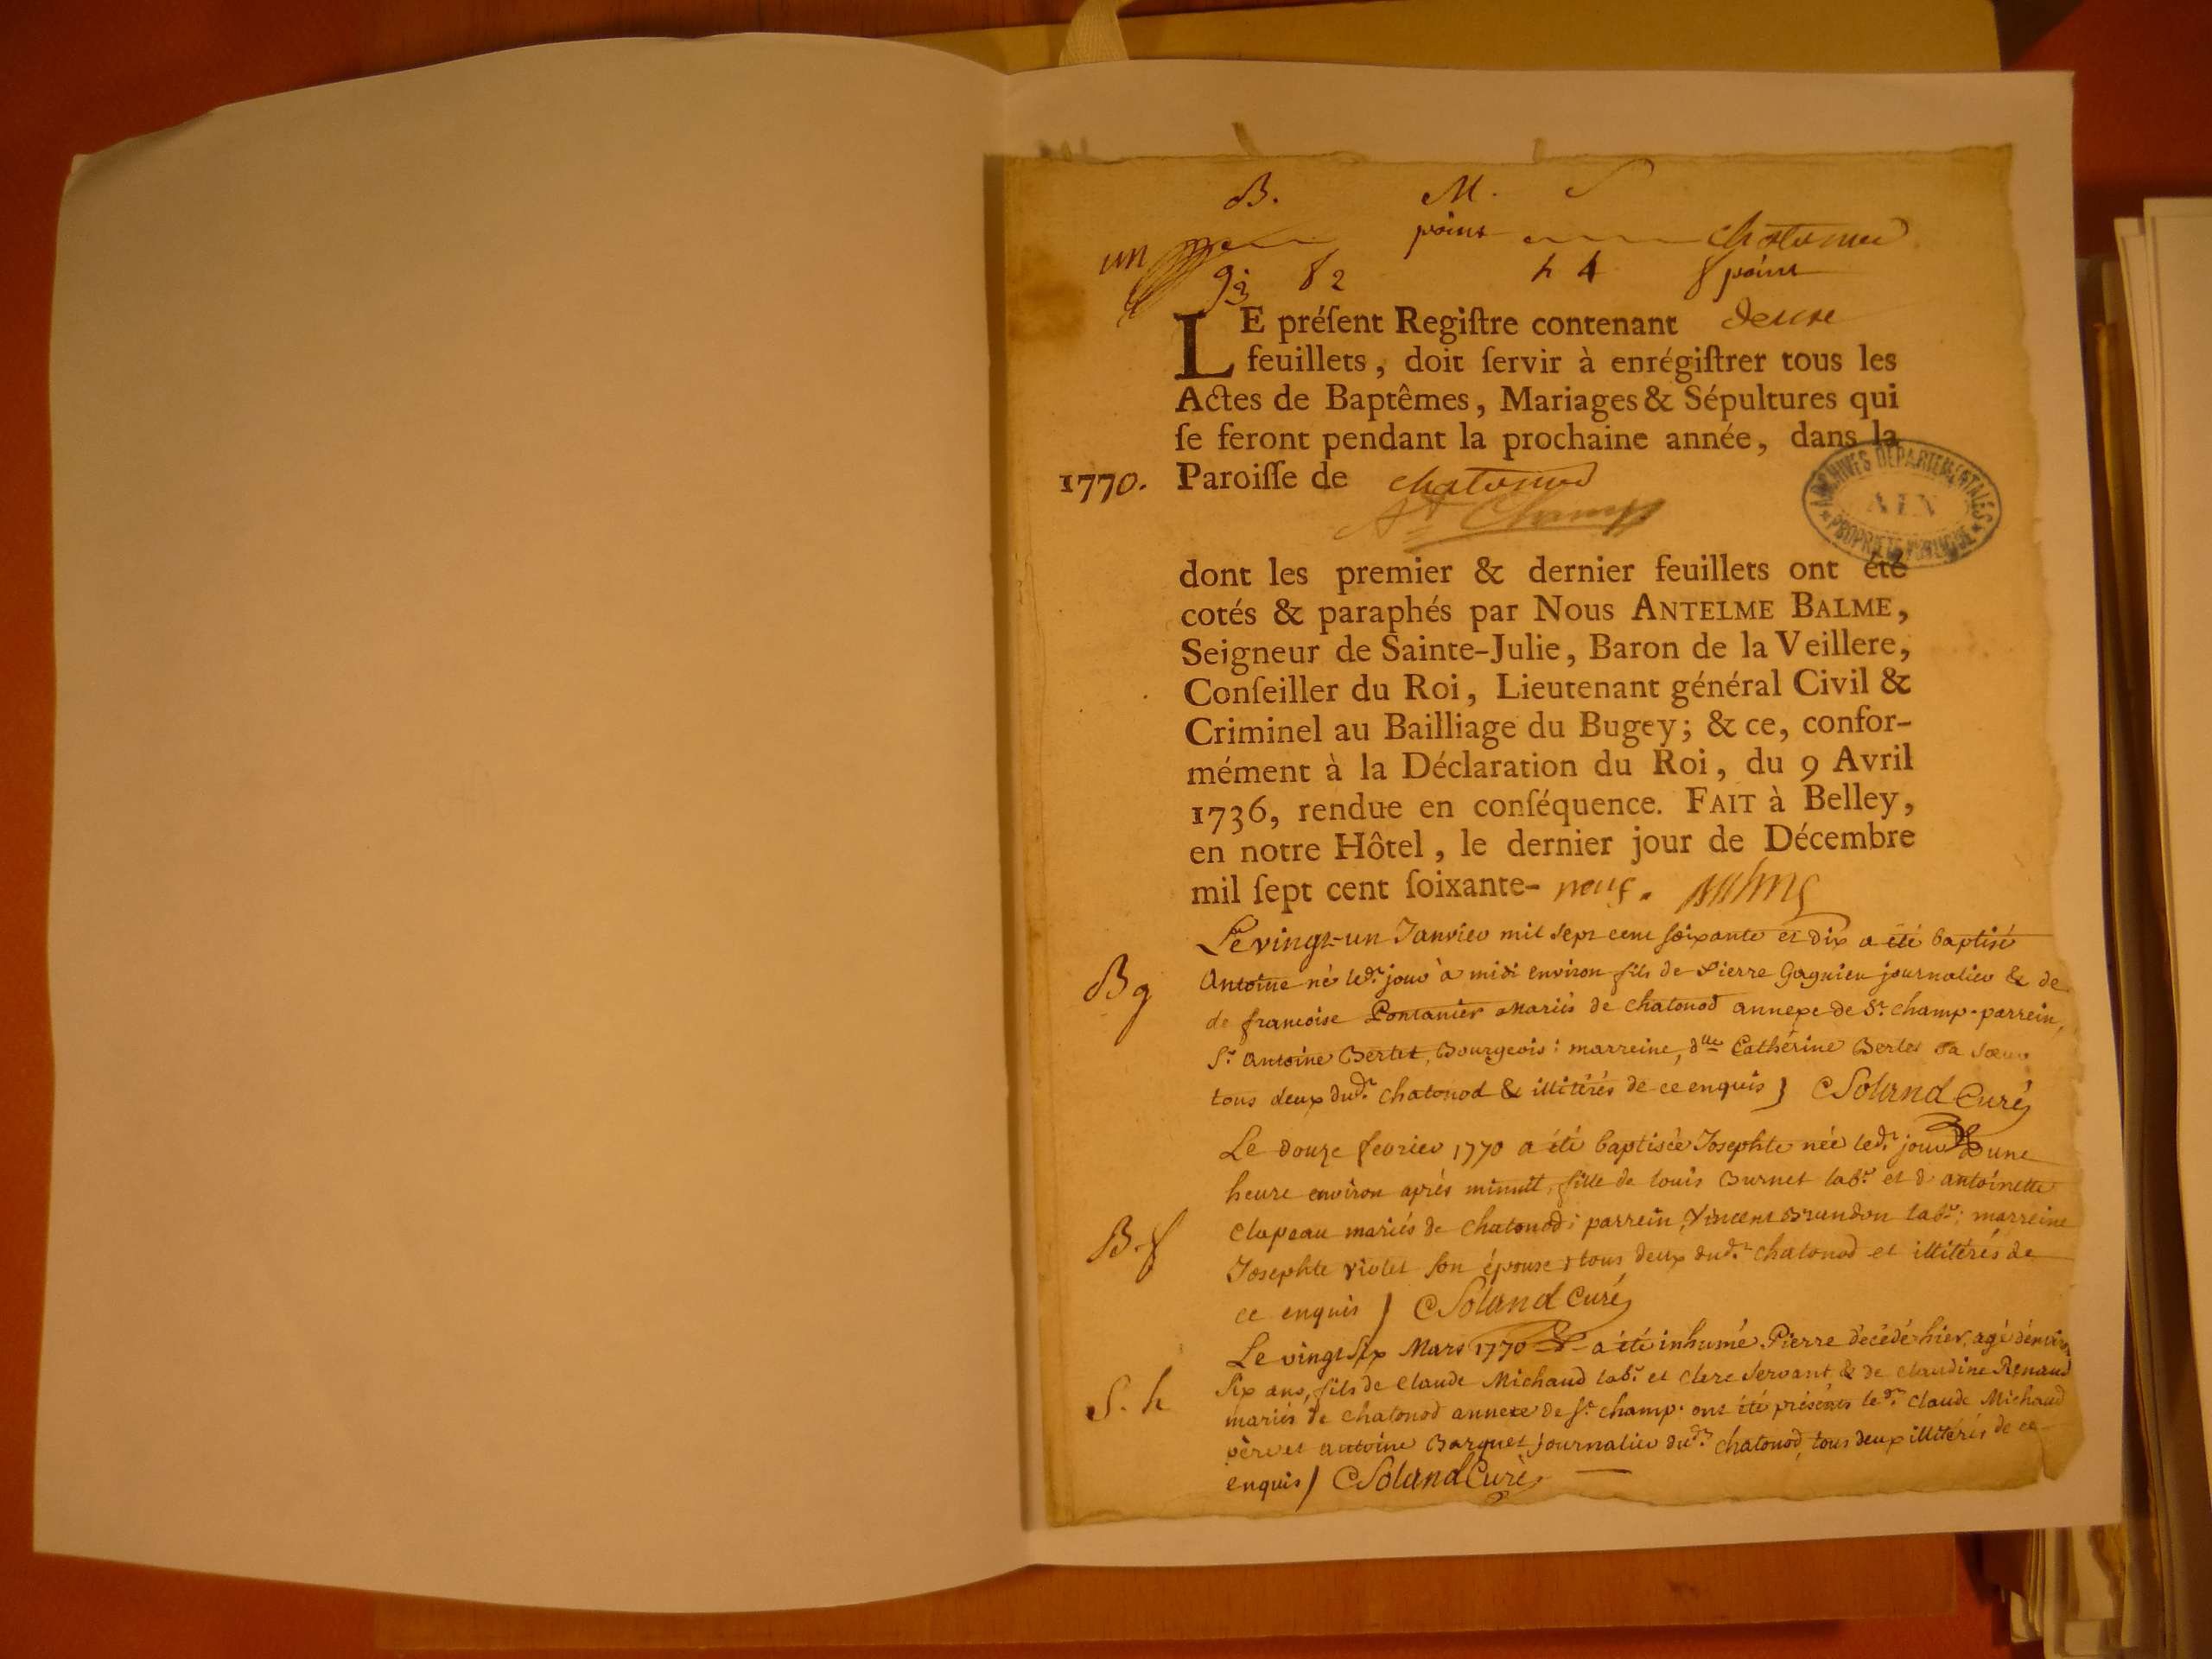 B. M. S
un point chatonod
g 3 f 2 h 4 f point
LE préſent Regiſtre contenant deux
feuillets, doit ſervir à enrégiſtrer tous les
Actes de Baptêmes, Mariages & Sépultures qui
ſe feront pendant la prochaine année, dans la
1770. Paroiſſe de chatonod
St Champ
ARCHIVES DÉPARTEMENTALES
AIN
PROPRIÉTÉ PUBLIQUE
dont les premier & dernier feuillets ont été
cotés & paraphés par Nous ANTELME BALME,
Seigneur de Sainte-Julie, Baron de la Veillere,
Conſeiller du Roi, Lieutenant général Civil &
Criminel au Bailliage du Bugey; & ce, confor-
mément à la Déclaration du Roi, du 9 Avril
1736, rendue en conſéquence. FAIT à Belley,
en notre Hôtel, le dernier jour de Décembre
mil ſept cent ſoixante- neuf. Balme
Le vingt-un Janvier mil sept cent soixante et dix a été baptisé
B g Antoine né ledt jour à midi environ fils de Pierre Gagnieu journalier & de
de francoise Pontanier mariés de chatonod annexe de St champ. parrein,
Sr antoine Bertet, Bourgeois: marreine, dlle Cathérine Bertet sa sœur
tous deux dudt chatonod & illitérés de ce enquis } Soland Curé
Le douze fevrier 1770 a été baptisée Josephte née ledt jour à une
heure environ aprés minuit, fille de louis Burnet labr et d'antoinette
B. f Clapeau mariés de chatonod; parrein, Vincent Brundon labr; marreine
Josephte violet son épouse, tous deux dudt chatonod et illitérés de
ce enquis } Soland Curé
Le vingt six Mars 1770 a été inhumé Pierre décédé hier, agé d'environ
S. h six ans, fils de Claude Michaud labr et clerc servant & de claudine Renaud
mariés de chatonod annexe de St champ. ont été présens ledt Claude Michaud
père et antoine Barquet journalier dudt chatonod, tous deux illitérés de ce
enquis } Soland Curé